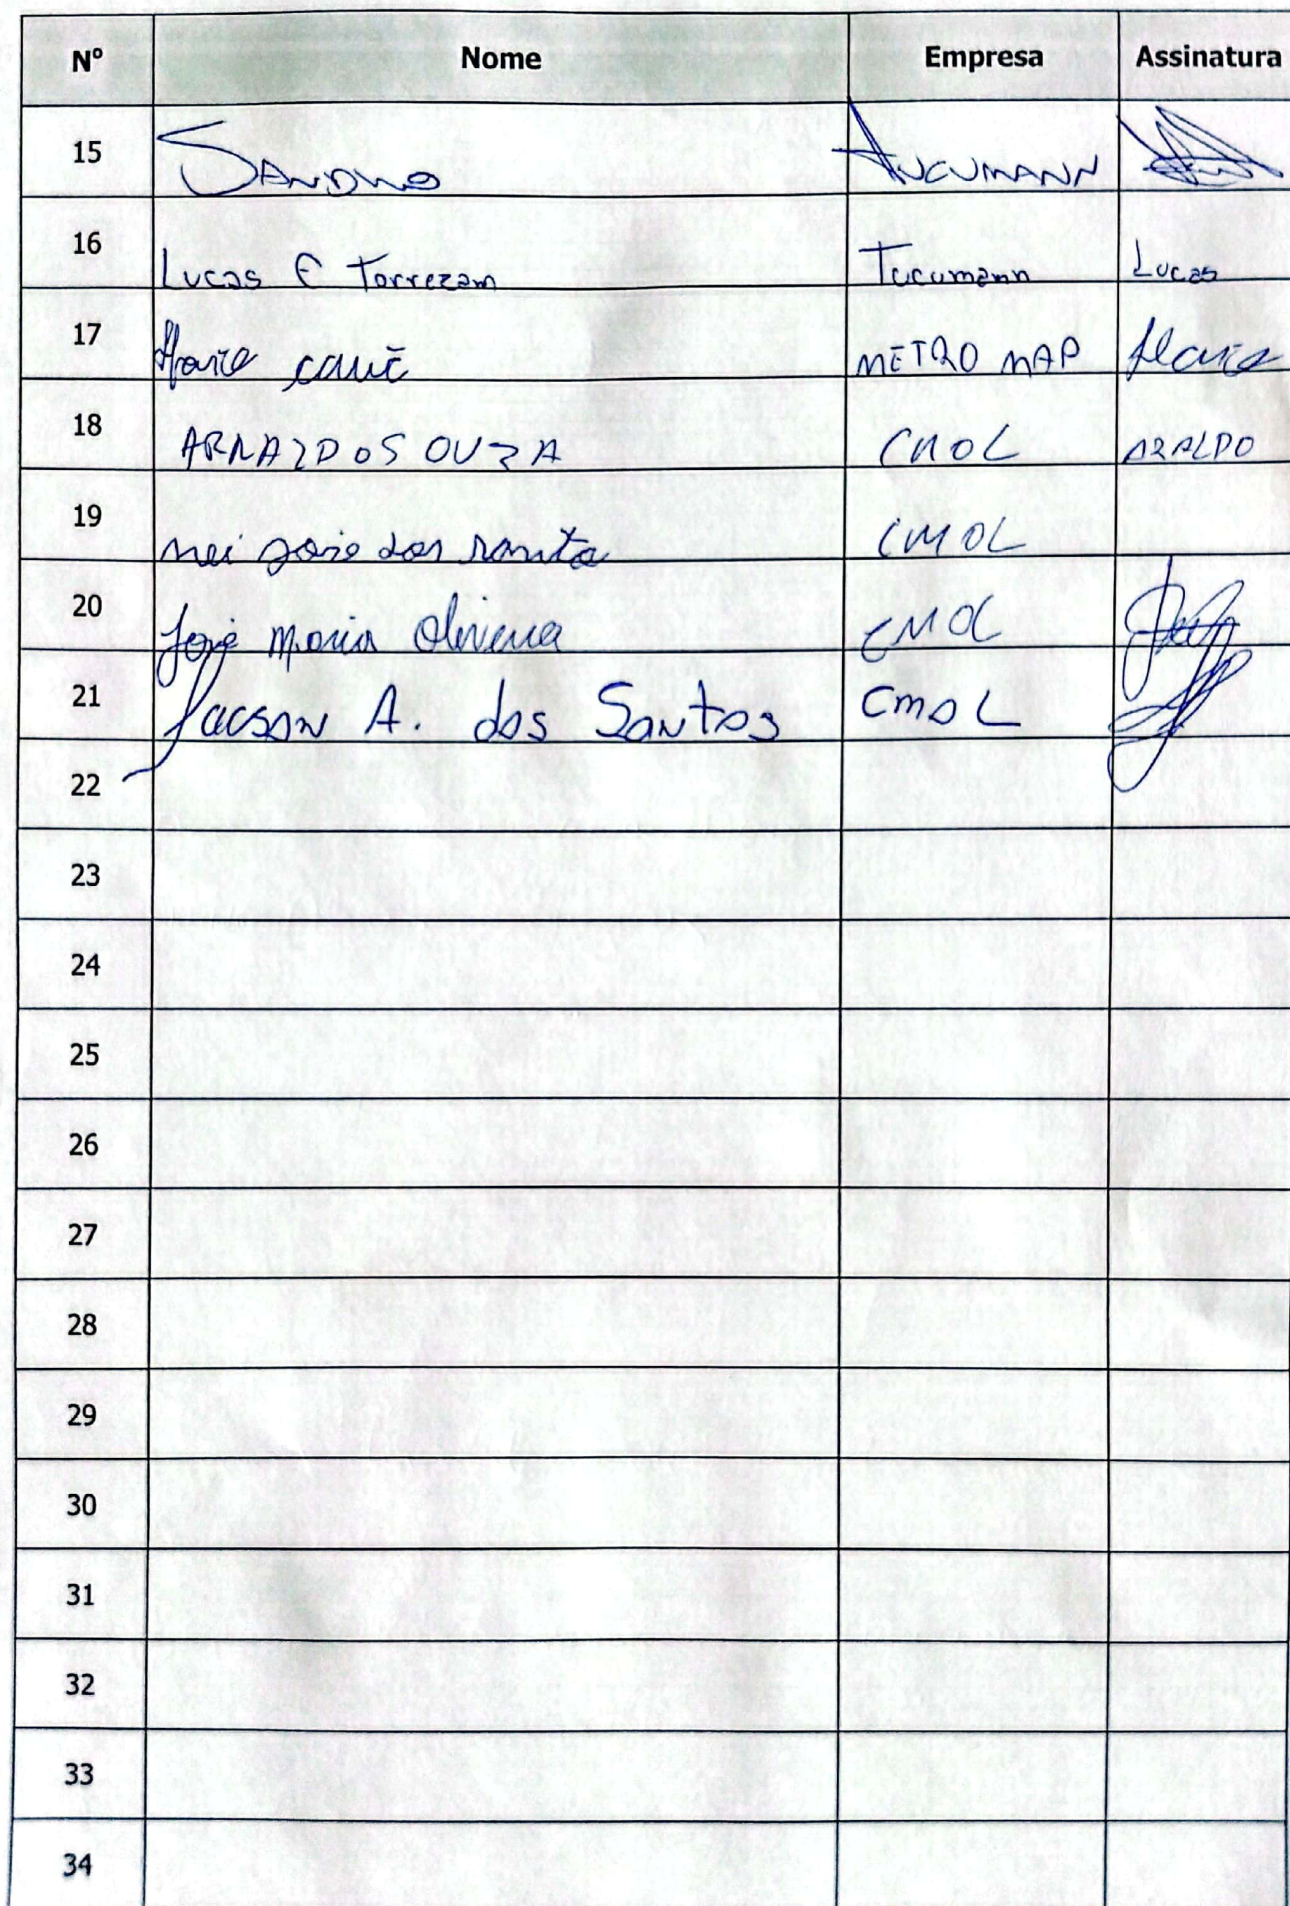 Nº Nome Empresa Assinatura
15 SANDRO TUCUMANN
16 Lucas E Torrezam Tucumann Lucas
17 METRO MAP
18 ARNALDO SOUZA CMOL ARALDO
19 Nei José dos Santos CMOL
20 José Maria Oliveira CMOL
21 Jacson A. dos Santos CMOL
22
23
24
25
26
27
28
29
30
31
32
33
34